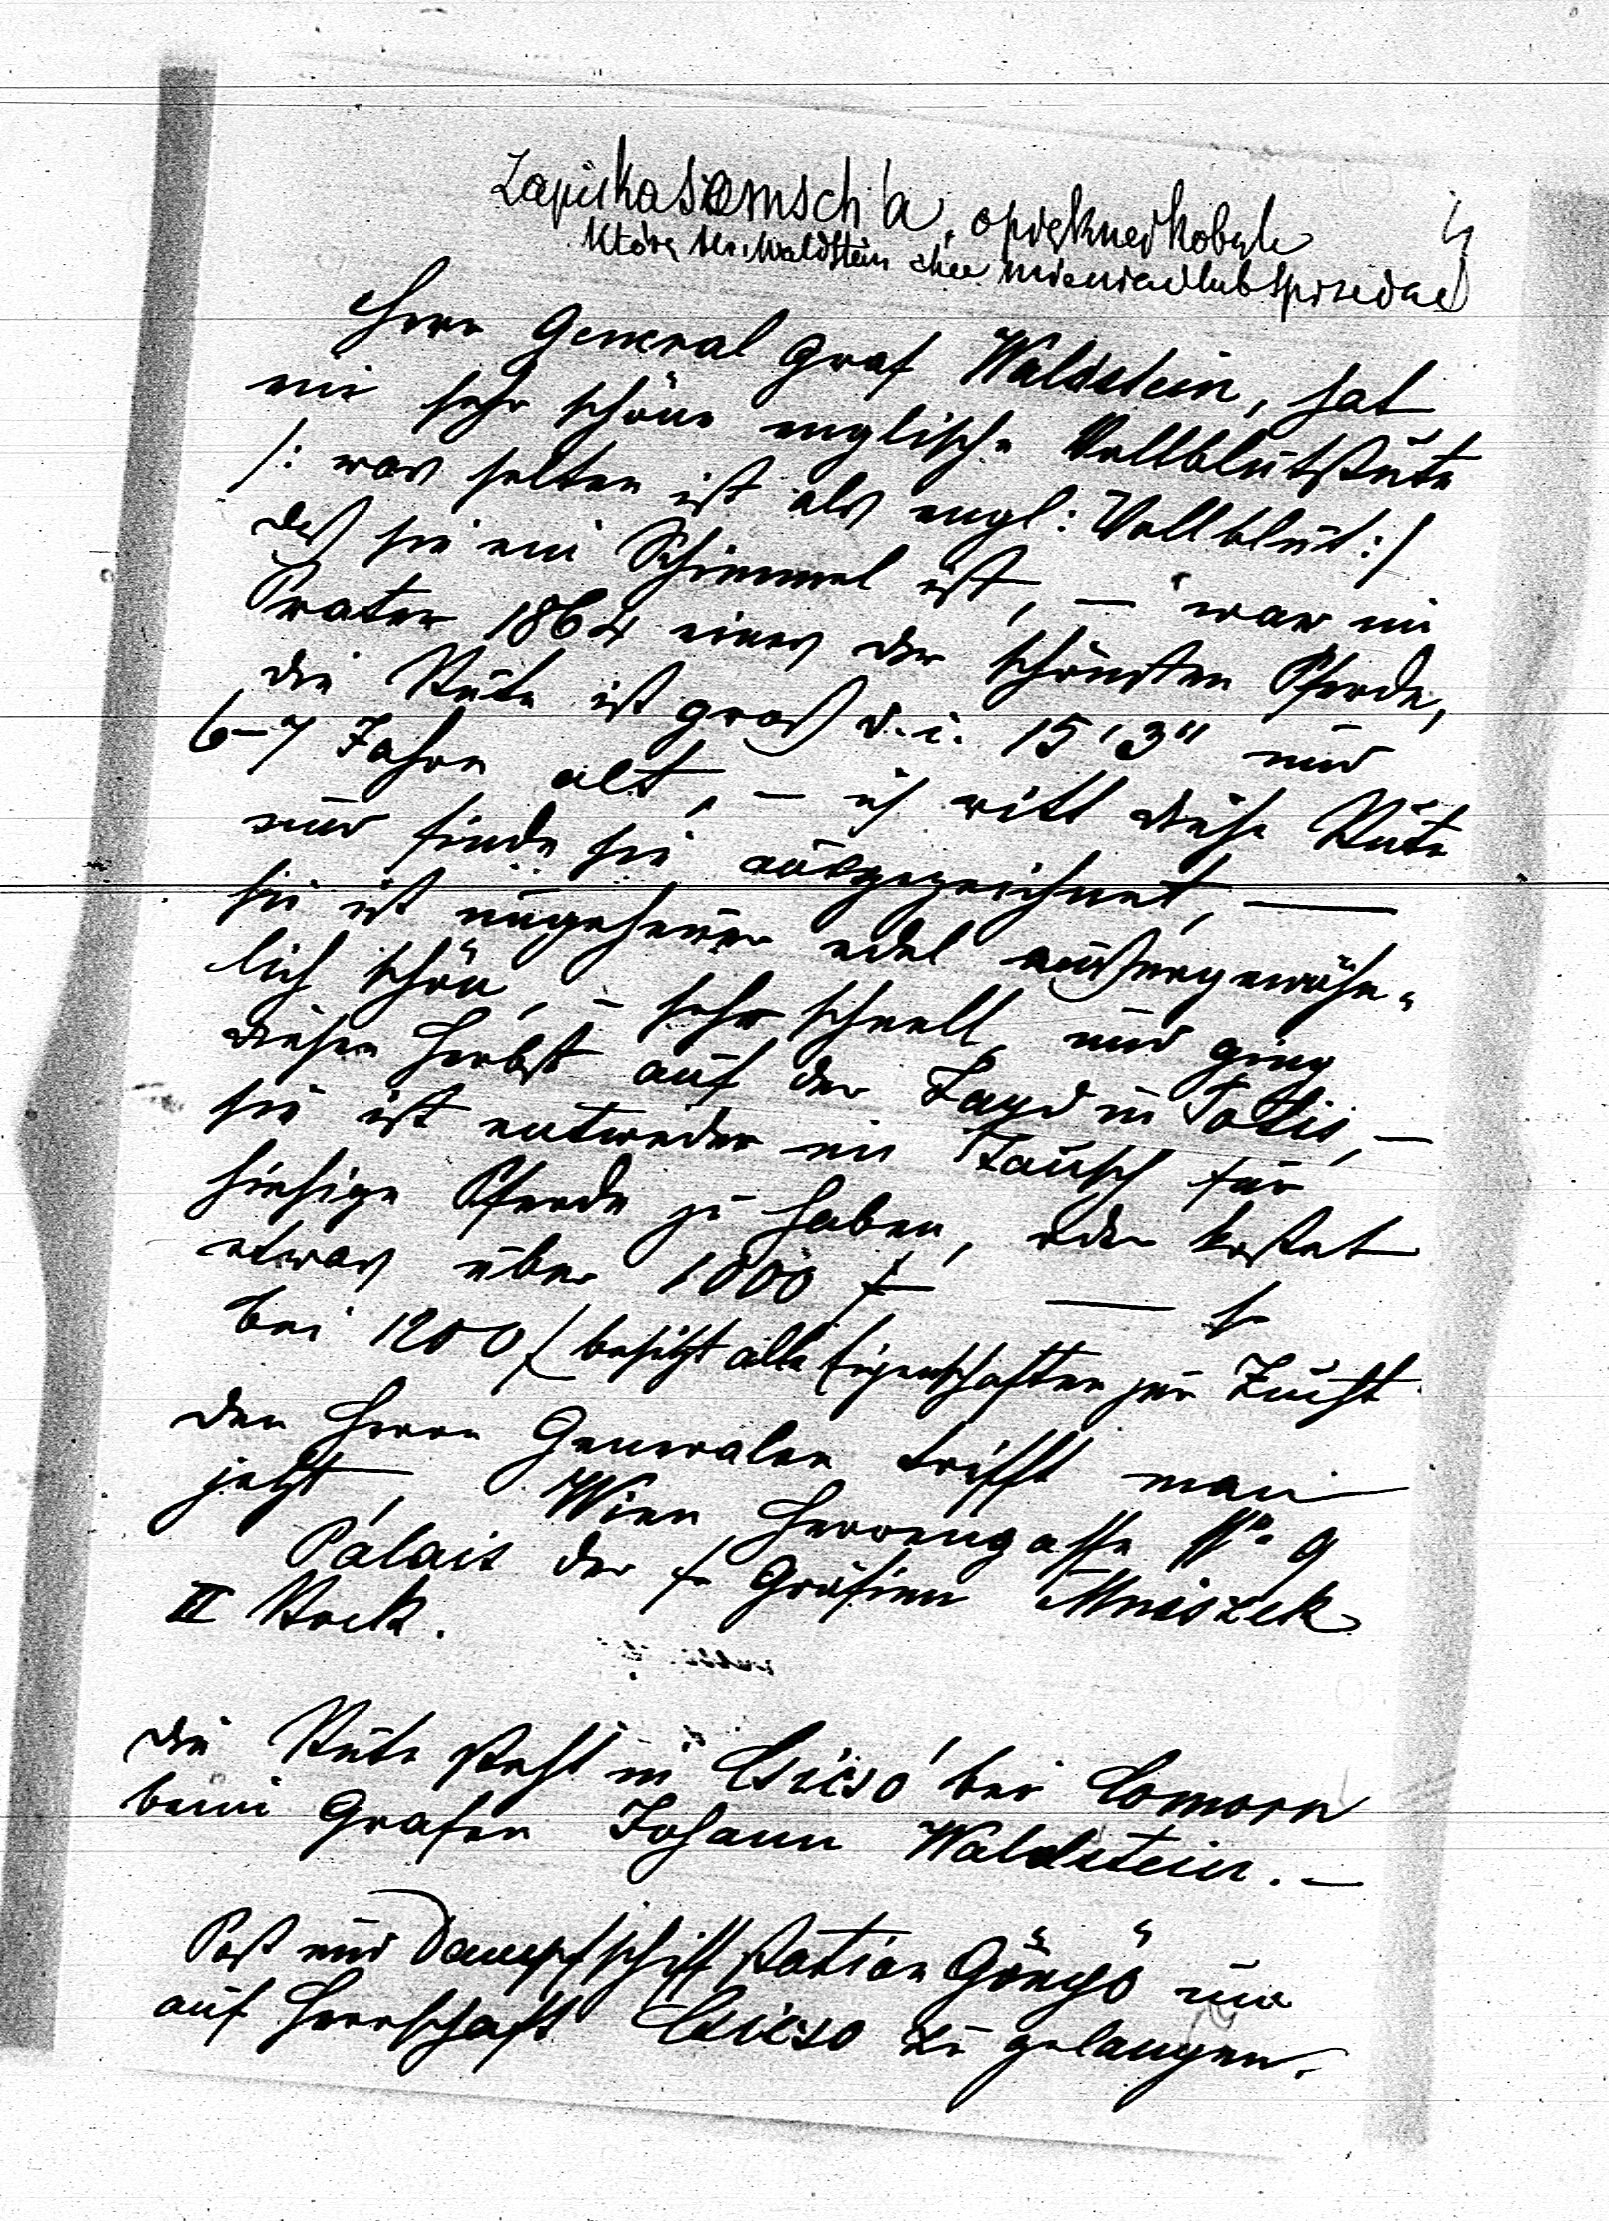 Zapiska Samsch'a, o pięknej kobyle
którą Hr. Waldstein chce mieniać lub sprzedać
Herr General Graf Waldstein, hat
eine sehr schöne englische Vollblutstute
/: was selten ist als engl: Vollblut :/
daß sie ein Schimmel ist, — war im
Prater 1864 eines der schönsten Pferde,
die Stute ist groß d. i. 15'3" und
6–7 Jahre alt, — ich ritt diese Stute
und finde sie ausgezeichnet, —
sie ist ungeheuer edel außergewöhn-
lich schön, – sehr schnell, und ging
diesen Herbst auf der Jagd in Totis, —
sie ist entweder im Tausch für
hiesige Pferde zu haben, oder kostet
etwas über 1000 f —
bei 1200 f besitzt alle Eigenschaften zur Zucht
den Herrn Generalen trifft man
jetzt, Wien Herrengasse No 9
Palais der Fr Gräfinn Mniszek
II Stock.
die Stute steht in Csicsó bei Comorn
beim Grafen Johann Waldstein. —
Post und Dampfschiffstation Gönyö um
auf Herrschaft Csicso zu gelangen.